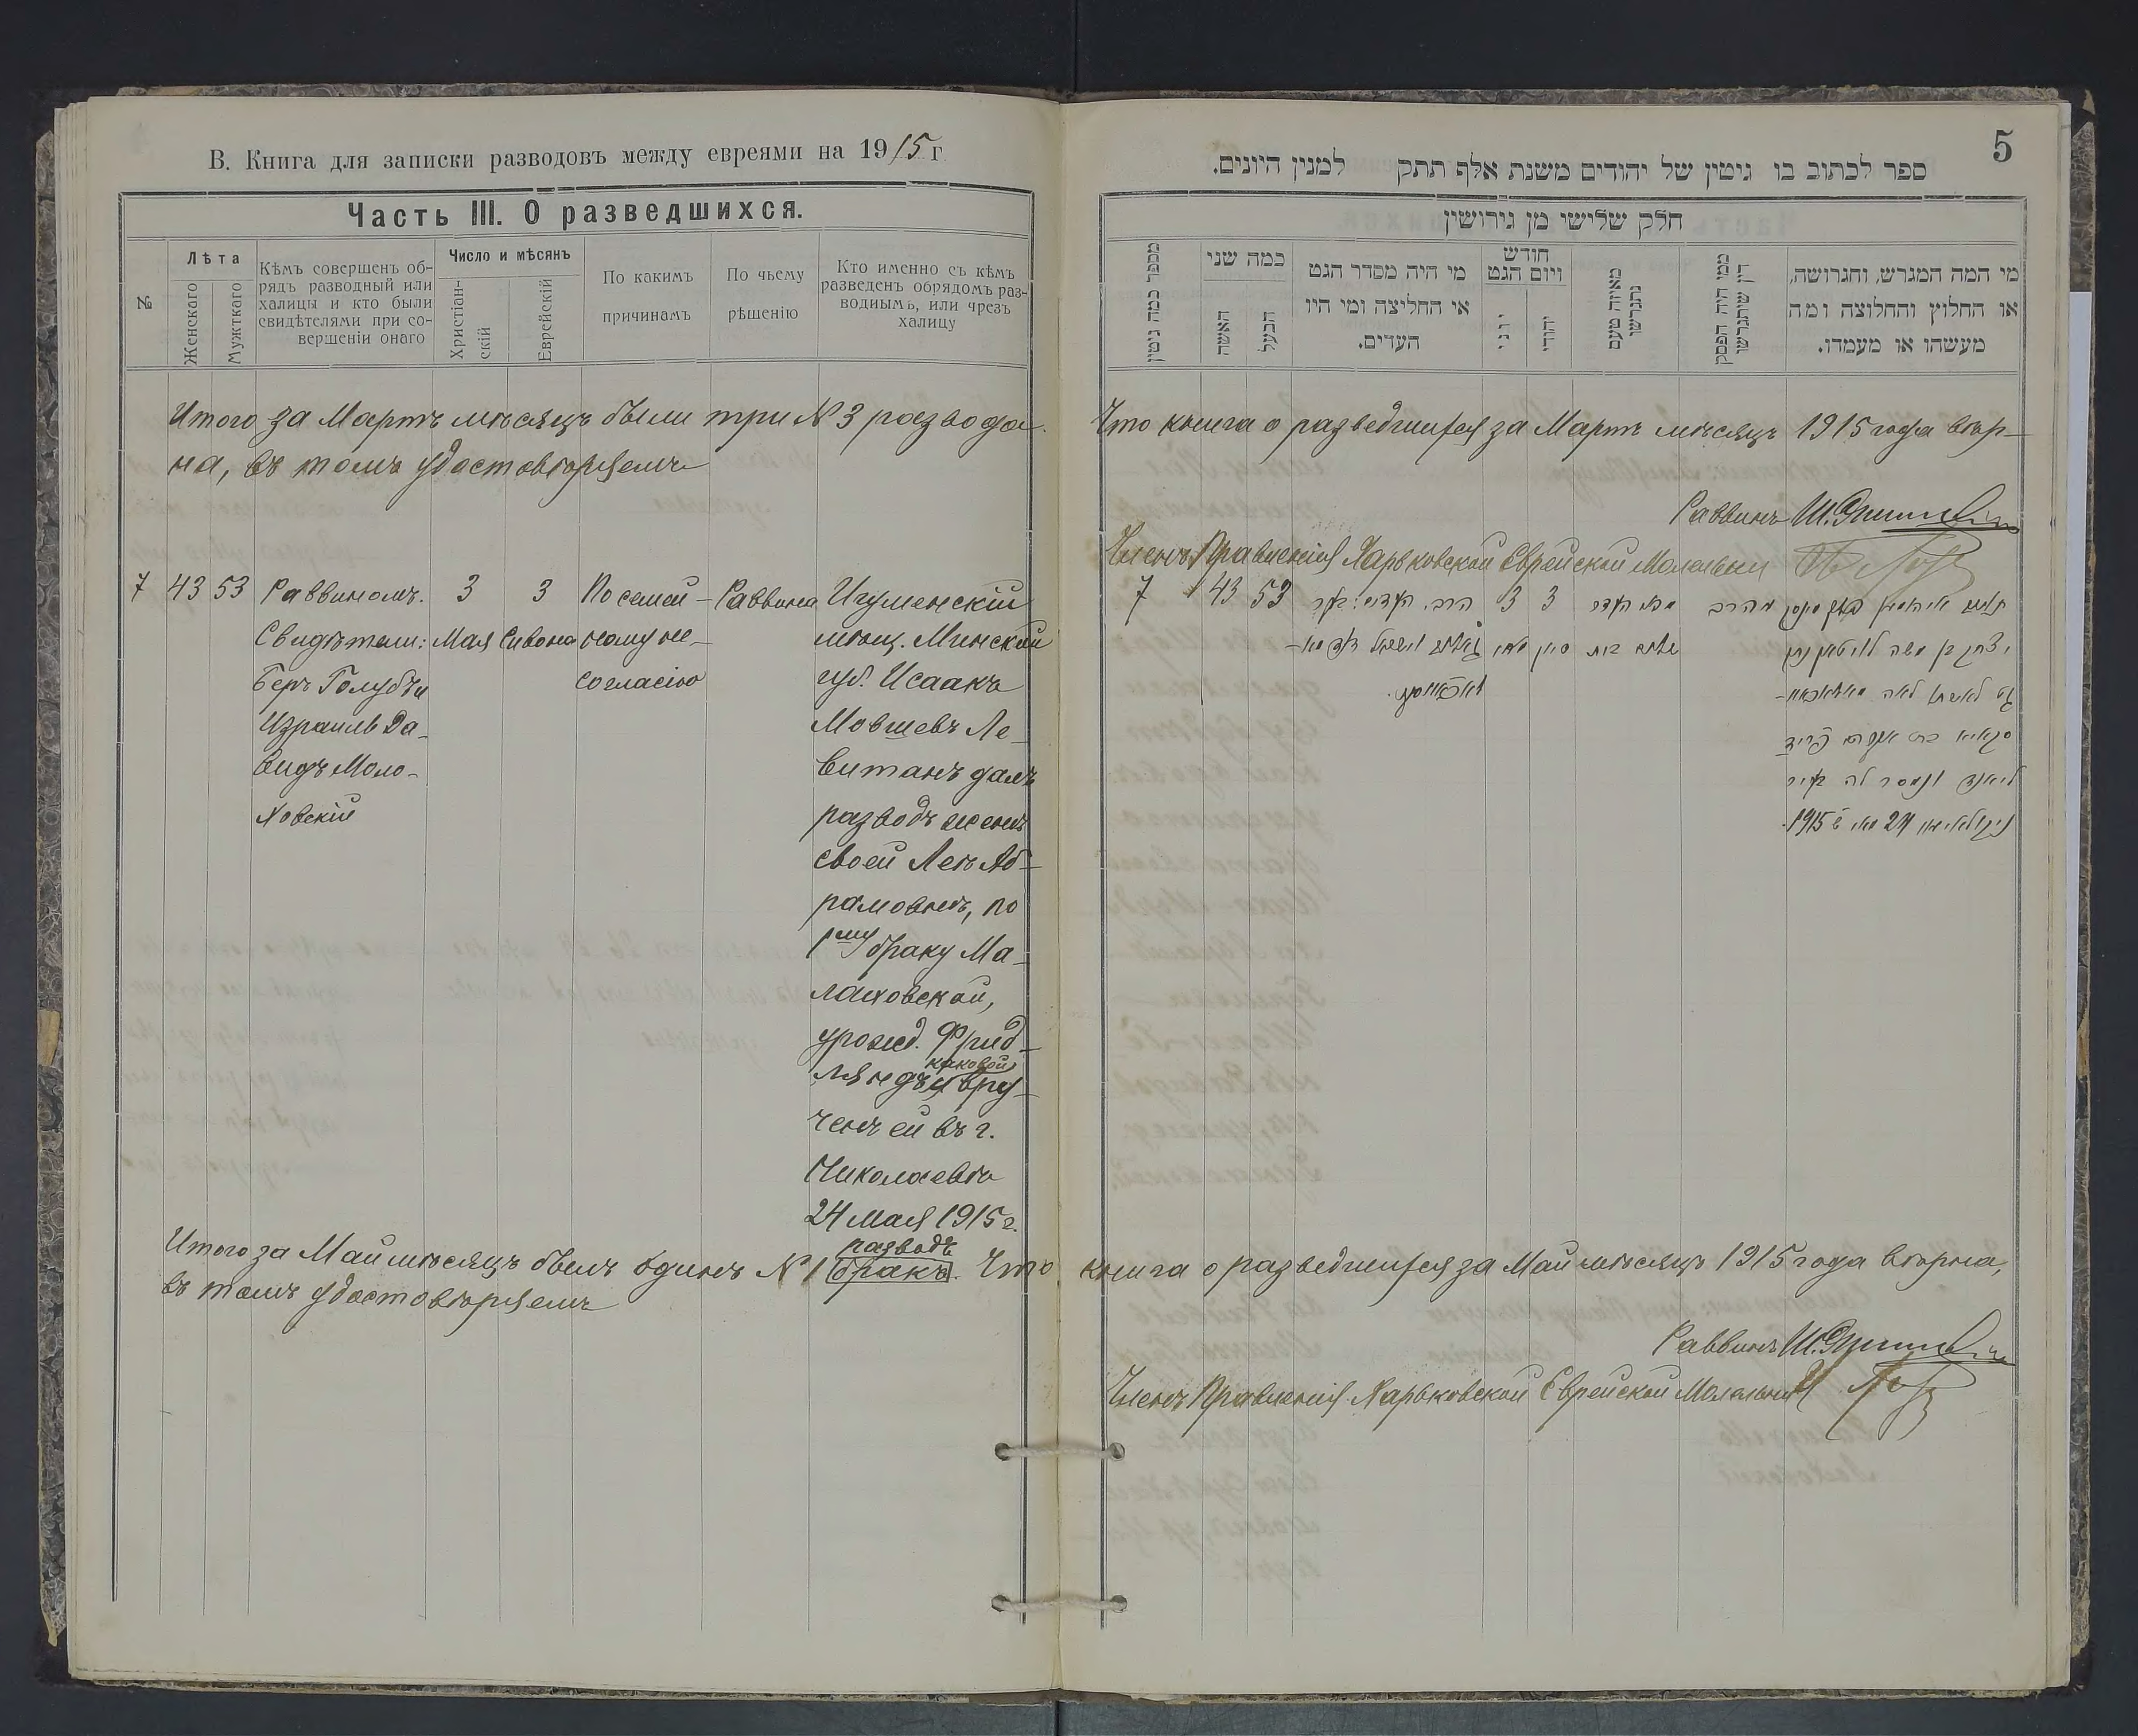 В. Книга для записки разводовъ между евреями на 1915 г
Часть III. О разведшихся.
№
Лѣта
Женскаго
Мужткаго
Кѣмъ совершенъ об-
рядъ разводный или
халицы и кто были
свидѣтелями при со-
вершеніи онаго
Число и мѣсянъ
Христіан-
скій
Еврейскій
По какимъ
причинамъ
По чьему
рѣшенію
Кто именно съ кѣмъ
разведенъ обрядомъ раз-
воднымъ, или чрезъ
халицу
Итого за Мартъ мѣсяцъ были три № 3 развода.
на, въ томъ удостовѣряемъ
7
43
53
Раввиномъ.
Свидѣтели:
Беръ Голубъ и
Израиль Да-
видъ Моло-
ховскій
3
Мая
3
Сивона
По семей-
ному не-
согласію
Раввина
Игуменскій
мѣщ. Минской
губ. Исаакъ
Мовшевъ Ле-
витанъ далъ
разводъ женѣ
своей Леѣ Аб-
рамовнѣ, по
1му браку Ма-
лаховской,
урожд. Фрид-
каковой
ляндъ вру-
ченъ ей въ г.
Николаевѣ
24 Мая 1915 г.
разводъ
Итого за Май мѣсяцъ былъ одинъ № 1 бракъ. Что
въ томъ удостовѣряемъ
5
ספר לכתוב בו גיטין של יהודים משנת אלף תתק למנין היונים.
חלק שלישי מן גירושין
מספר כמה גיטין
כמה שני
האשה
הבעל
מי היה מסדר הגט
או החליצה ומי היו
העדים.
חודש
ויום הגט
יוני
יהודי
מאיזה טעם
נתגרשו
ממי היה הפסק
דין שיתגרשו
מי המה המגרש, והגרושה,
או החלוץ והחלוצה ומה
מעשהו או מעמדו.
Что книга о разведшихся за Мартъ мѣсяцъ 1915 года вѣр-
Раввинъ
Членъ Правленія Харьковской Еврейской Молельни
7
43
53
הרב. העדים: בער
3
3
מהרב
יצחק בן משה לוויטאן נתן
גט לאשתו לאה
ונמסר לה בעיר
ניקאלאיעוו 24 מאי 1915.
книга о разведшихся за Май мѣсяцъ 1915 года вѣрна,
Раввинъ
Членъ Правленія Харьковской Еврейской Молельни